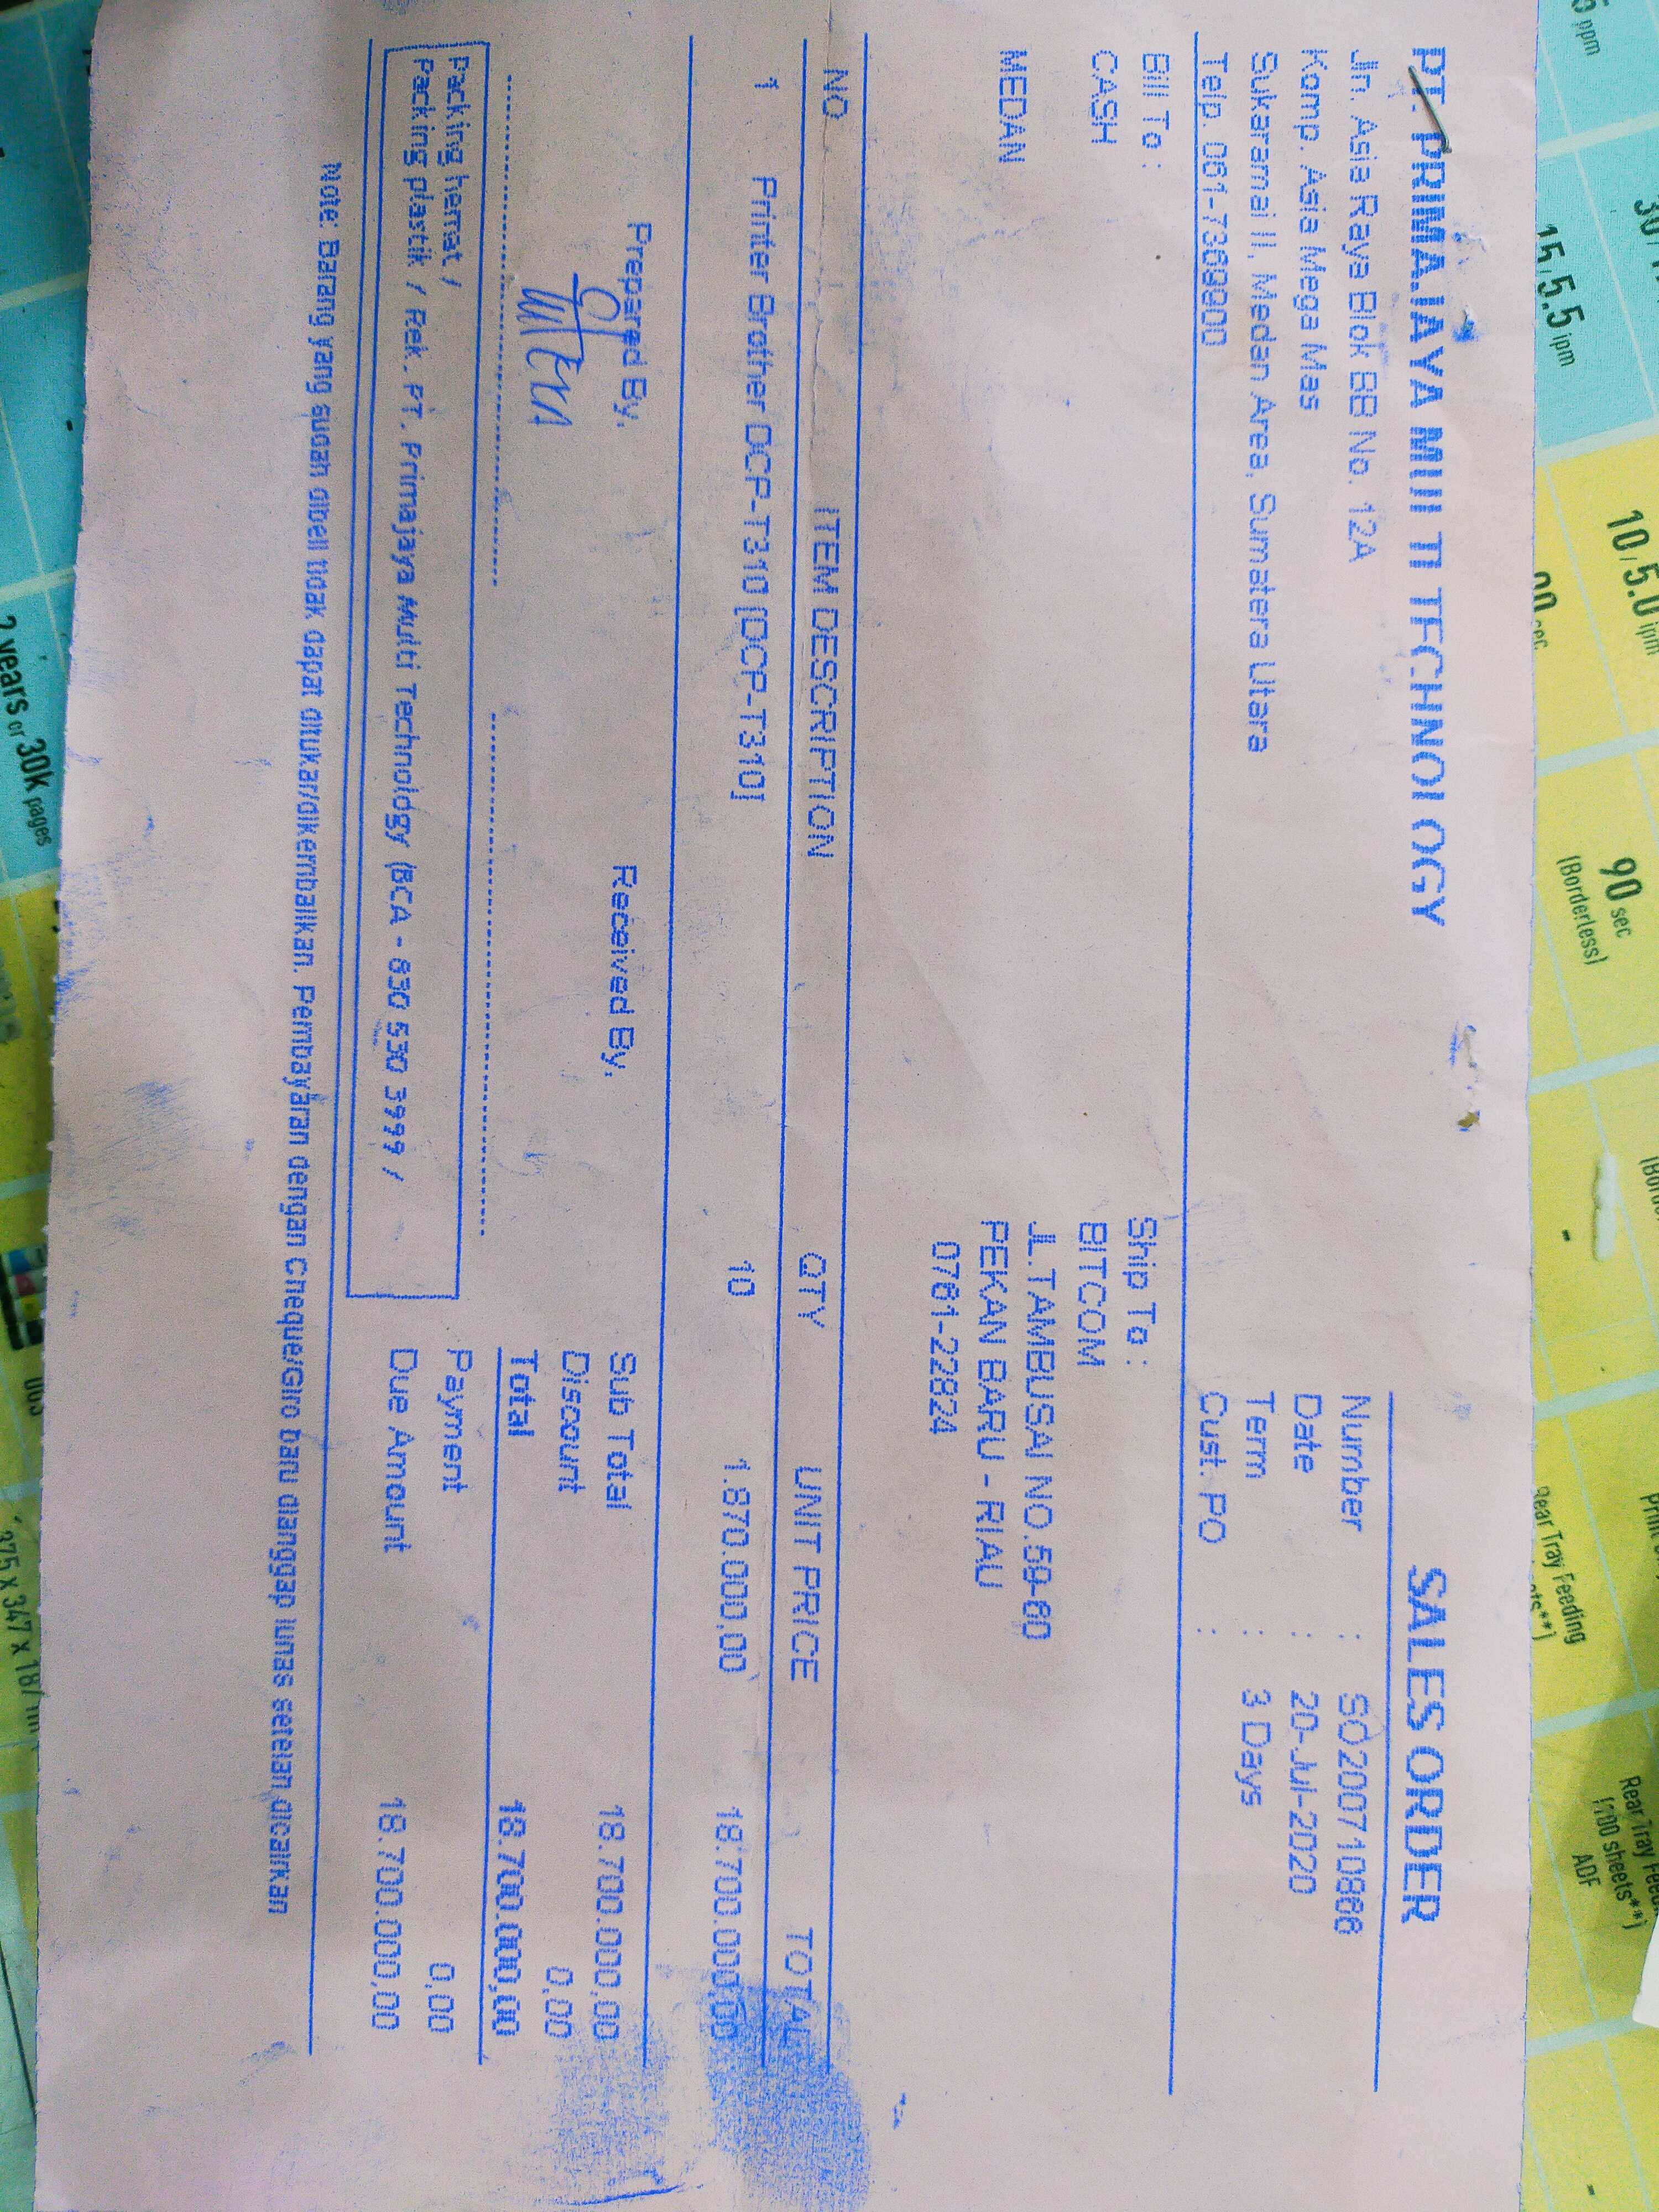 PT. PRIMAJAYA MULTI TECHNOLOGY
SALES ORDER
Jln. Asia Raya Blok BB No. 12A
Komp. Asia Mega Mas
Sukaramai II, Medan Area, Sumatera Utara
Telp. 061-7369900
Number : SO200710866
Date : 20-Jul-2020
Term : 3 Days
Cust. PO :
Bill To :
CASH
MEDAN
Ship To :
BITCOM
JL.TAMBUSAI NO.59-60
PEKAN BARU - RIAU
0761-22824
NO ITEM DESCRIPTION QTY UNIT PRICE TOTAL
1 Printer Brother DCP-T310 [DCP-T310] 10 1.870.000,00 18.700.000,00
Prepared By,
Received By,
Sub Total 18.700.000,00
Discount 0,00
Total 18.700.000,00
Payment 0,00
Due Amount 18.700.000,00
Packing hemat /
Packing plastik / Rek. PT. Primajaya Multi Technology (BCA - 830 530 3999 /
Note: Barang yang sudah dibeli tidak dapat ditukar/dikembalikan. Pembayaran dengan Cheque/Giro baru dianggap lunas setelah dicairkan
5 ppm
15/5.5 ipm
10/5.0 ipm
sec
90 sec
(Borderless)
Rear Tray Feeding
ADF
2 years or 30K pages
375 x 347 x 187